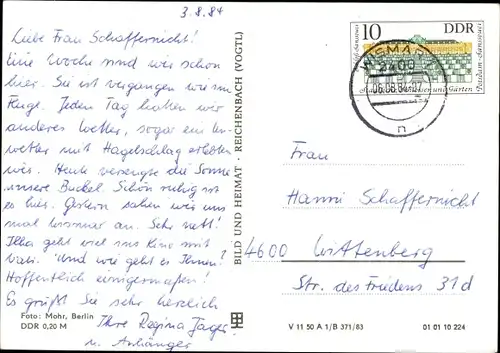 3.8.84
Liebe Frau Schaffernicht!
Eine Woche sind wir schon
hier. Sie ist vergangen wie im
Fluge. Jeden Tag hatten wir
anderes Wetter, sogar ein Un-
wetter mit Hagelschlag erlebten
wir. Heute versengte die Sonne
unsere Buckel. Schön ruhig ist
es hier. Gestern sahen wir uns
mal Wismar an. Sehr nett!
geht viel ins Kino mit
Vati. Und wie geht es Ihnen?
Hoffentlich einigermaßen!
Es grüßt Sie sehr herzlich
Ihre Regina Jäger
u. Anhänger
Foto: Mohr, Berlin
DDR 0,20 M
BILD UND HEIMAT · REICHENBACH (VOGTL)
10 DDR
WISMAR
2400
06.08.84
n
Schlösser und Gärten Potsdam-Sanssouci
Frau
Hanni Schaffernicht
4600 Wittenberg
Str. des Friedens 31d
V 11 50 A 1/B 371/83
01 01 10 224